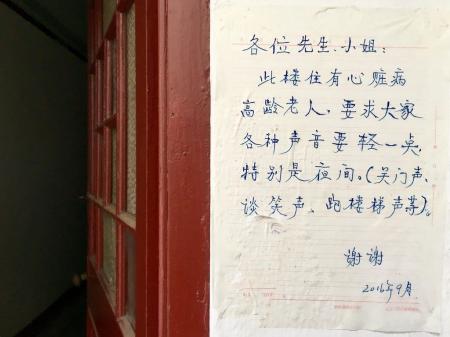 各位先生、小姐：
此楼住有心脏病
高龄老人，要求大家
各种声音要轻一点，
特别是夜间。（关门声、
谈笑声、跑楼梯声等）。
谢谢
2016年9月